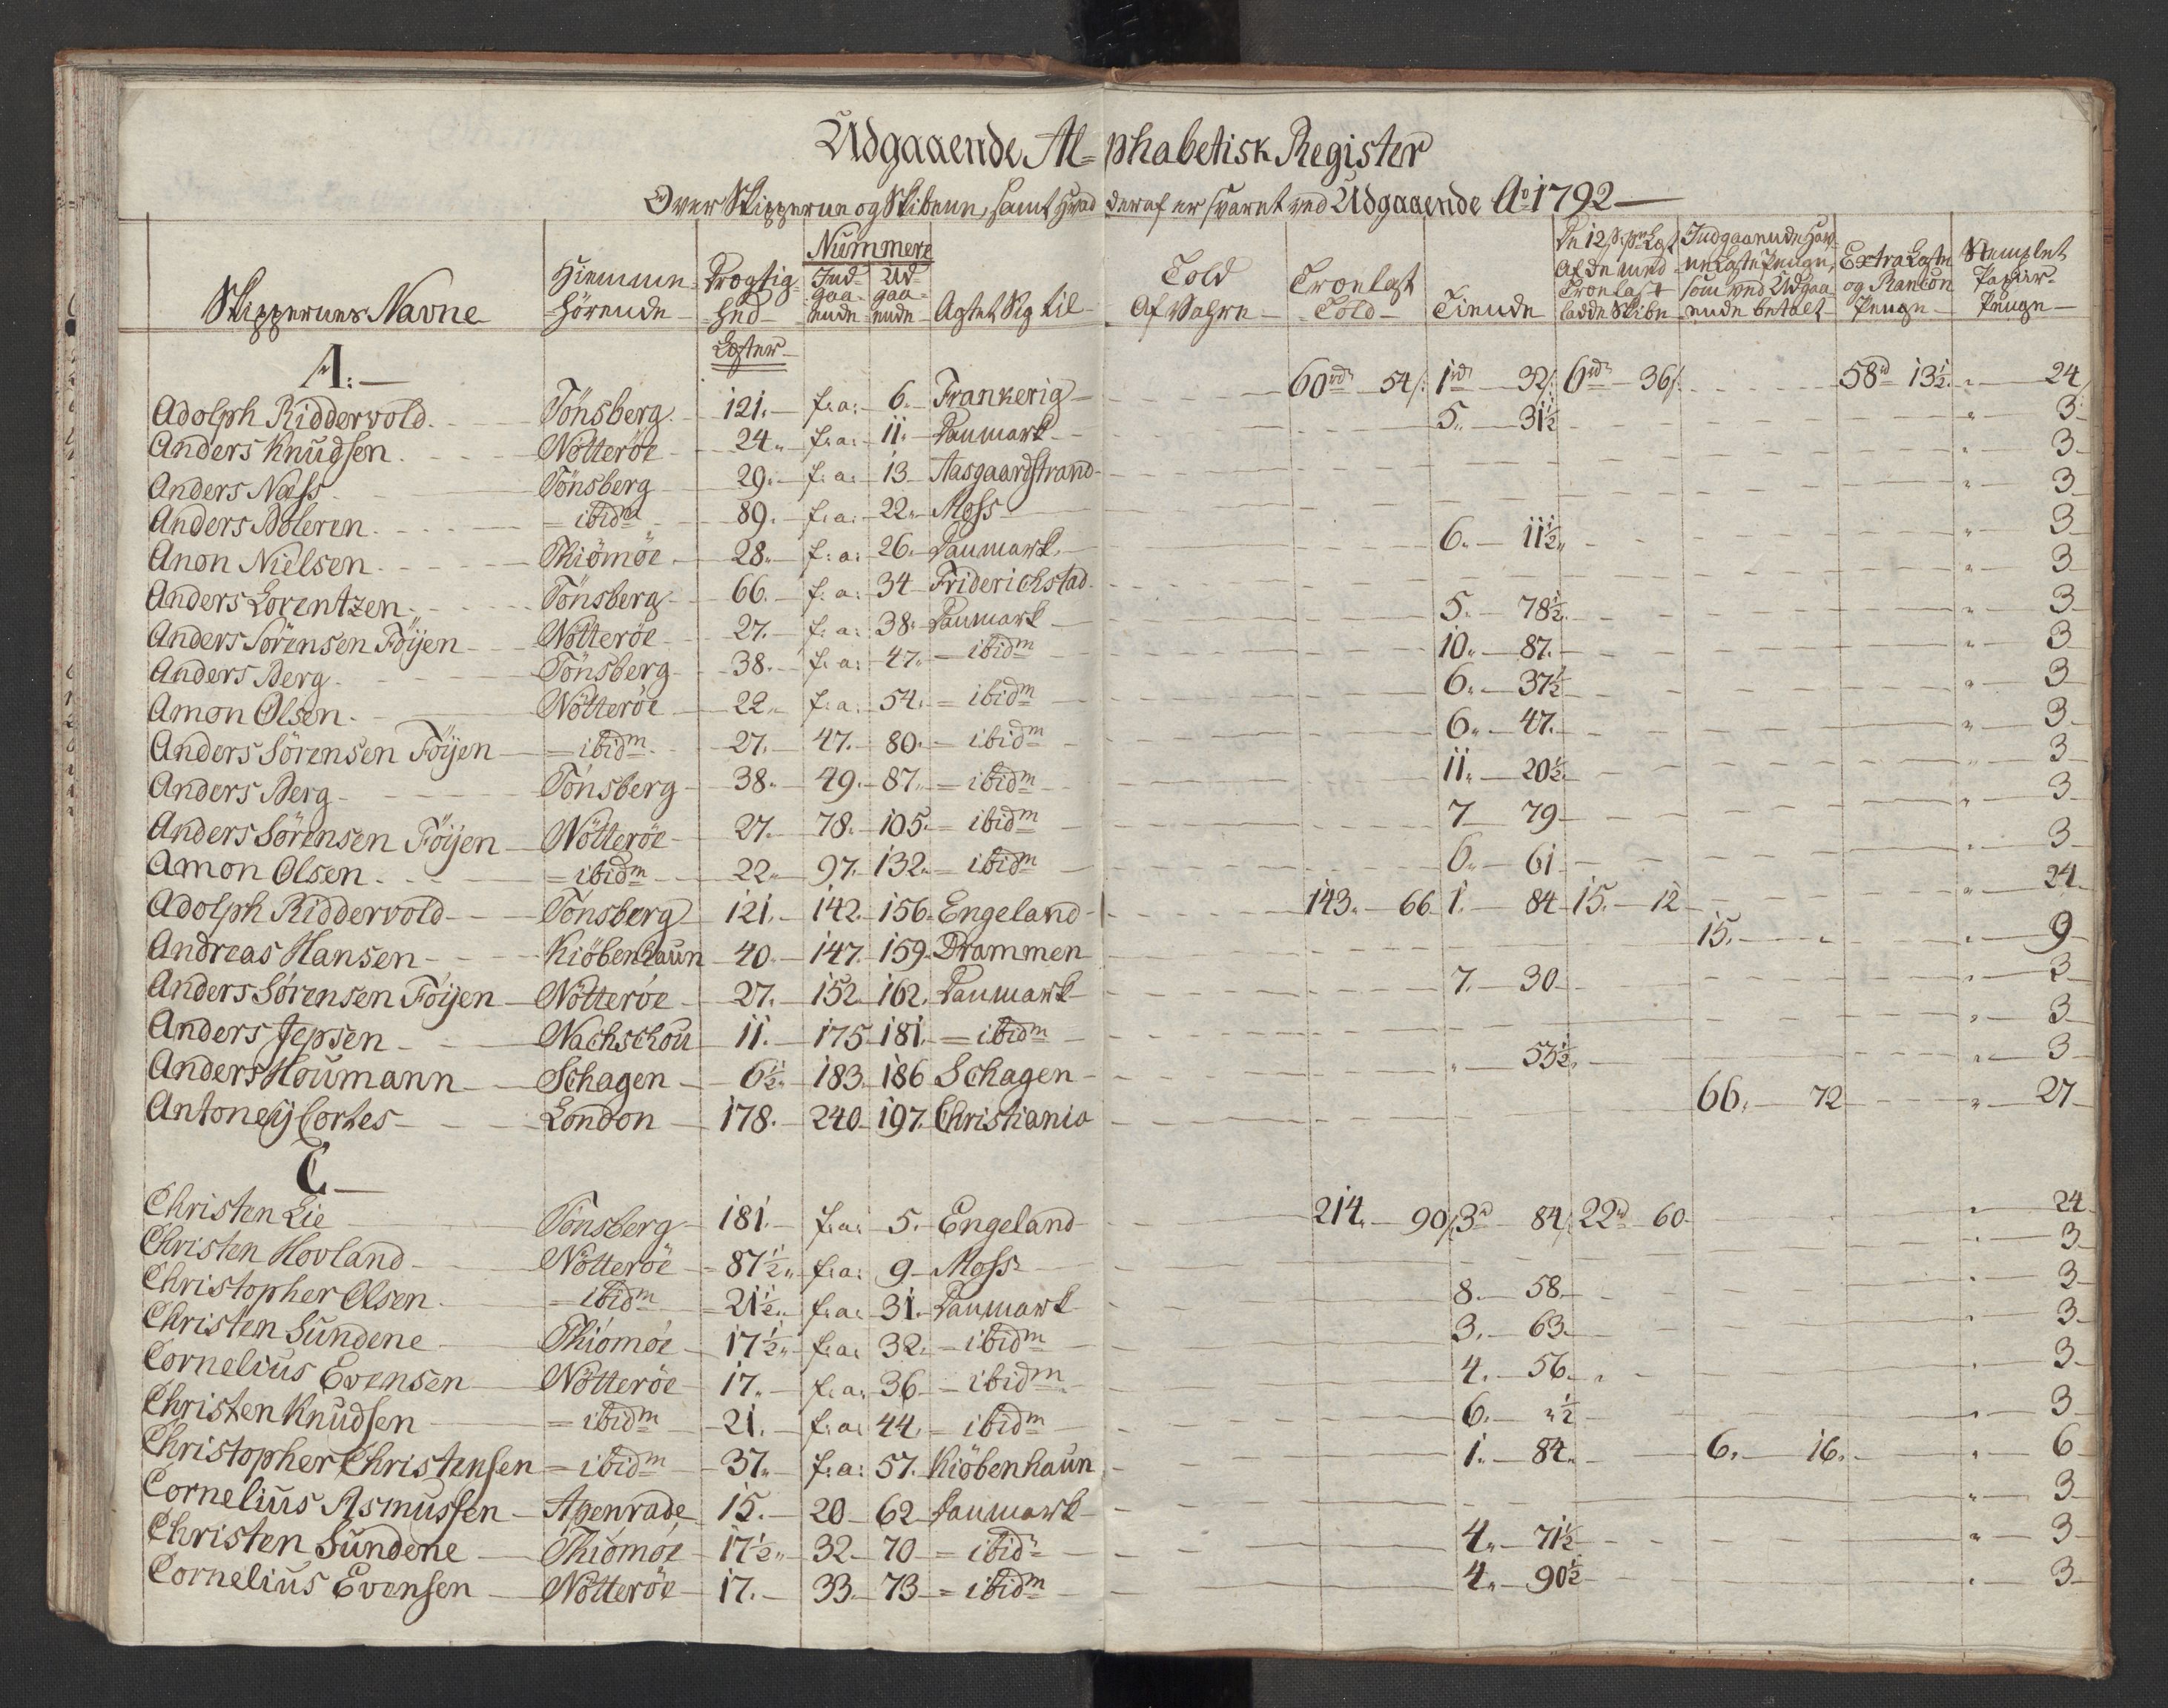 Udgaaende Al= phabetisk Register
Over Skipperne og Skibene, samt hvad deraf er svaret ved Udgaaende Ao 1792
Skippernes Navne Hiemme Hörende Drægtighed Læster Nummere Ind-gaa-ende Ud-gaa-ende Agtet Sig til Told Af Vahre Trælast Told Tiende De 12 s. pr Læst Af de med Trælast ladde Skibe Indgaaende Hav-ne Læste Penge, som ved Udgaa-ende betalt Extra Læste og Rancon Penge Stemplet Papir-Penge
A:
Adolph Riddervold Tönsberg 121. f: a: 6. Frankerig 60rd 54s. 1rd 32s. 6rd 36s. 58rd 13½ " 24
Anders Knudsen Nötteröe 24. f: a: 11. Danmark 5. 31½ " 3
Anders Næss Tönsberg 29. f: a: 13 Aasgaardstrand " 3
Anders Boleren = ibidm 89. f: a: 22. Moss " 3
Anon Nielsen Thiömöe 28. f: a: 26. Danmark 6. 11½ " 3
Anders Lorentzen Tönsberg 66. f: a: 34 Friderichstad " 3
Anders Sörensen Föyen Nötteröe 27. f: a: 38. Danmark 5. 78½ " 3
Anders Berg Tönsberg 38. f: a: 47. = ibidm 10. 87. " 3
Amon Olsen Nötteröe 22. f: a: 54. = ibidm 6. 37½ " 3
Anders Sörensen Föyen = ibidm 27. 47. 80. = ibidm 6. 47. " 3
Anders Berg Tönsberg 38. 49. 87. = ibidm 11. 20½ " 3
Anders Sörensen Föyen Nötteröe 27. 78. 105. = ibidm 7 79 " 3
Amon Olsen = ibidm 22. 97. 132. = ibidm 6. 61 " 3
Adolph Riddervold Tönsberg 121. 142. 156. Engeland 143. 66 1. 84 15. 12 " 24
Andreas Hansen Kiöbenhaun 40. 147. 159. Drammen 15. " " 9
Anders Sörensen Föyen Nötteröe 27. 152. 162. Danmark 7. 30 " 3
Anders Jepsen Nachschou 11. 175 181. = ibidm " 3
Anders Houmann Schagen 6½. 183. 186 Schagen " 53½. " 3
Antoney Cortes London 178. 240 197. Christiania 66. 72 " 27
C
Christen Lie Tönsberg 181. f: a: 5. Engeland 214. 90s. 3rd 84s. 22rd 60 " 24
Christen Hovland Nötteröe 87½. f: a: 9 Moss " 3
Christopher Olsen = ibidm 21½. f: a: 31. Danmark 8. 58 " 3
Christen Sundene Thiömöe 17½. f: a: 32. = ibidm 3. 63 " 3
Cornelius Evensen Nötteröe 17. f: a: 36 = ibidm 4. 56 " 3
Christen Knudsen = ibidm 21. f: a: 44. = ibidm 6. "½ " 3
Christopher Christensen = ibidm 37. f: a: 57. Kiöbenhaun 1. 84. 6. 16. " 6
Cornelius Asmussen Apenrade 15. 20 62 Danmark " 3
Christen Sundene Thiömöe 17½. 32 70 = ibidm 4. 71½ " 3
Cornelius Evensen Nötteröe 17. 33. 73 = ibidm 4. 90½ " 3